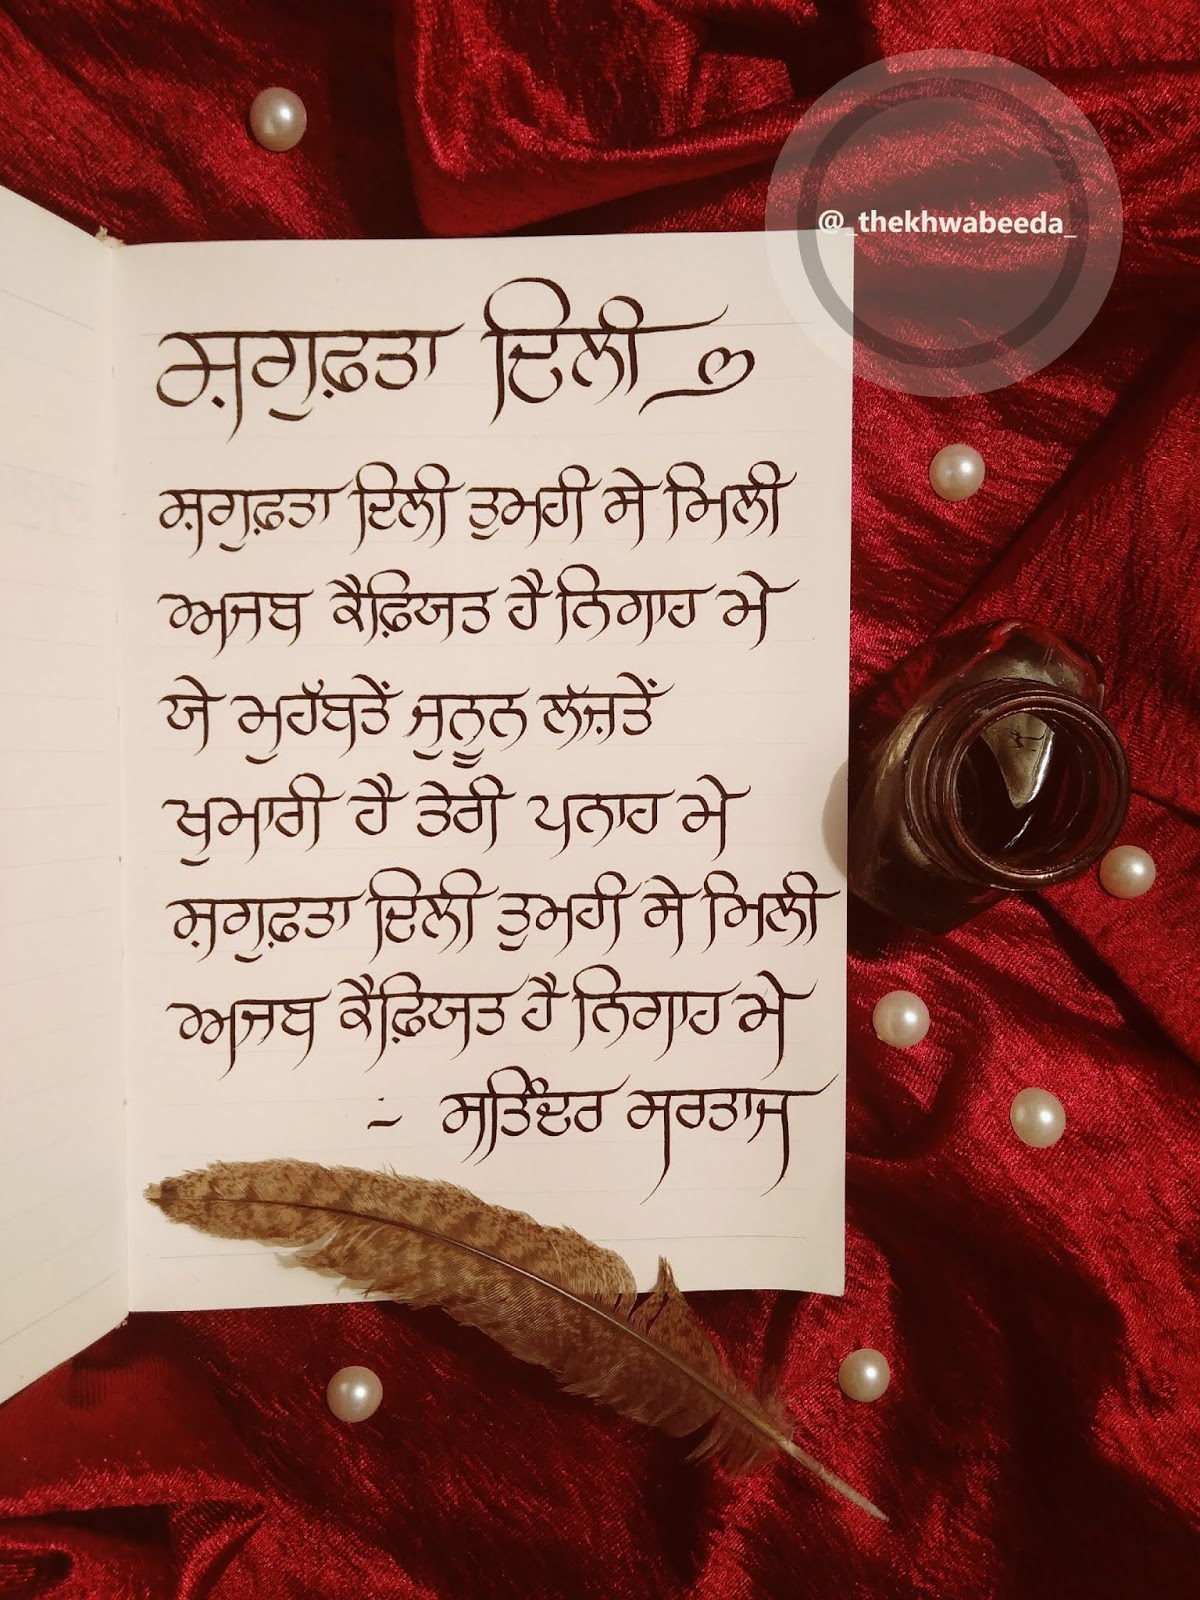 @_thekhwabeeda_
ਸ਼ਗੁਫ਼ਤਾ ਦਿਲੀ
ਸ਼ਗੁਫ਼ਤਾ ਦਿਲੀ ਤੁਮਹੀ ਸੇ ਮਿਲੀ
ਅਜਬ ਕੈਫ਼ਿਯਤ ਹੈ ਨਿਗਾਹ ਮੇ
ਯੇ ਮੁਹੱਬਤੇਂ ਜੁਨੂਨ ਲੱਜ਼ਤੇਂ
ਖੁਮਾਰੀ ਹੈ ਤੇਰੀ ਪਨਾਹ ਮੇ
ਸ਼ਗੁਫ਼ਤਾ ਦਿਲੀ ਤੁਮਹੀ ਸੇ ਮਿਲੀ
ਅਜਬ ਕੈਫ਼ਿਯਤ ਹੈ ਨਿਗਾਹ ਮੇ
- ਸਤਿੰਦਰ ਸਰਤਾਜ